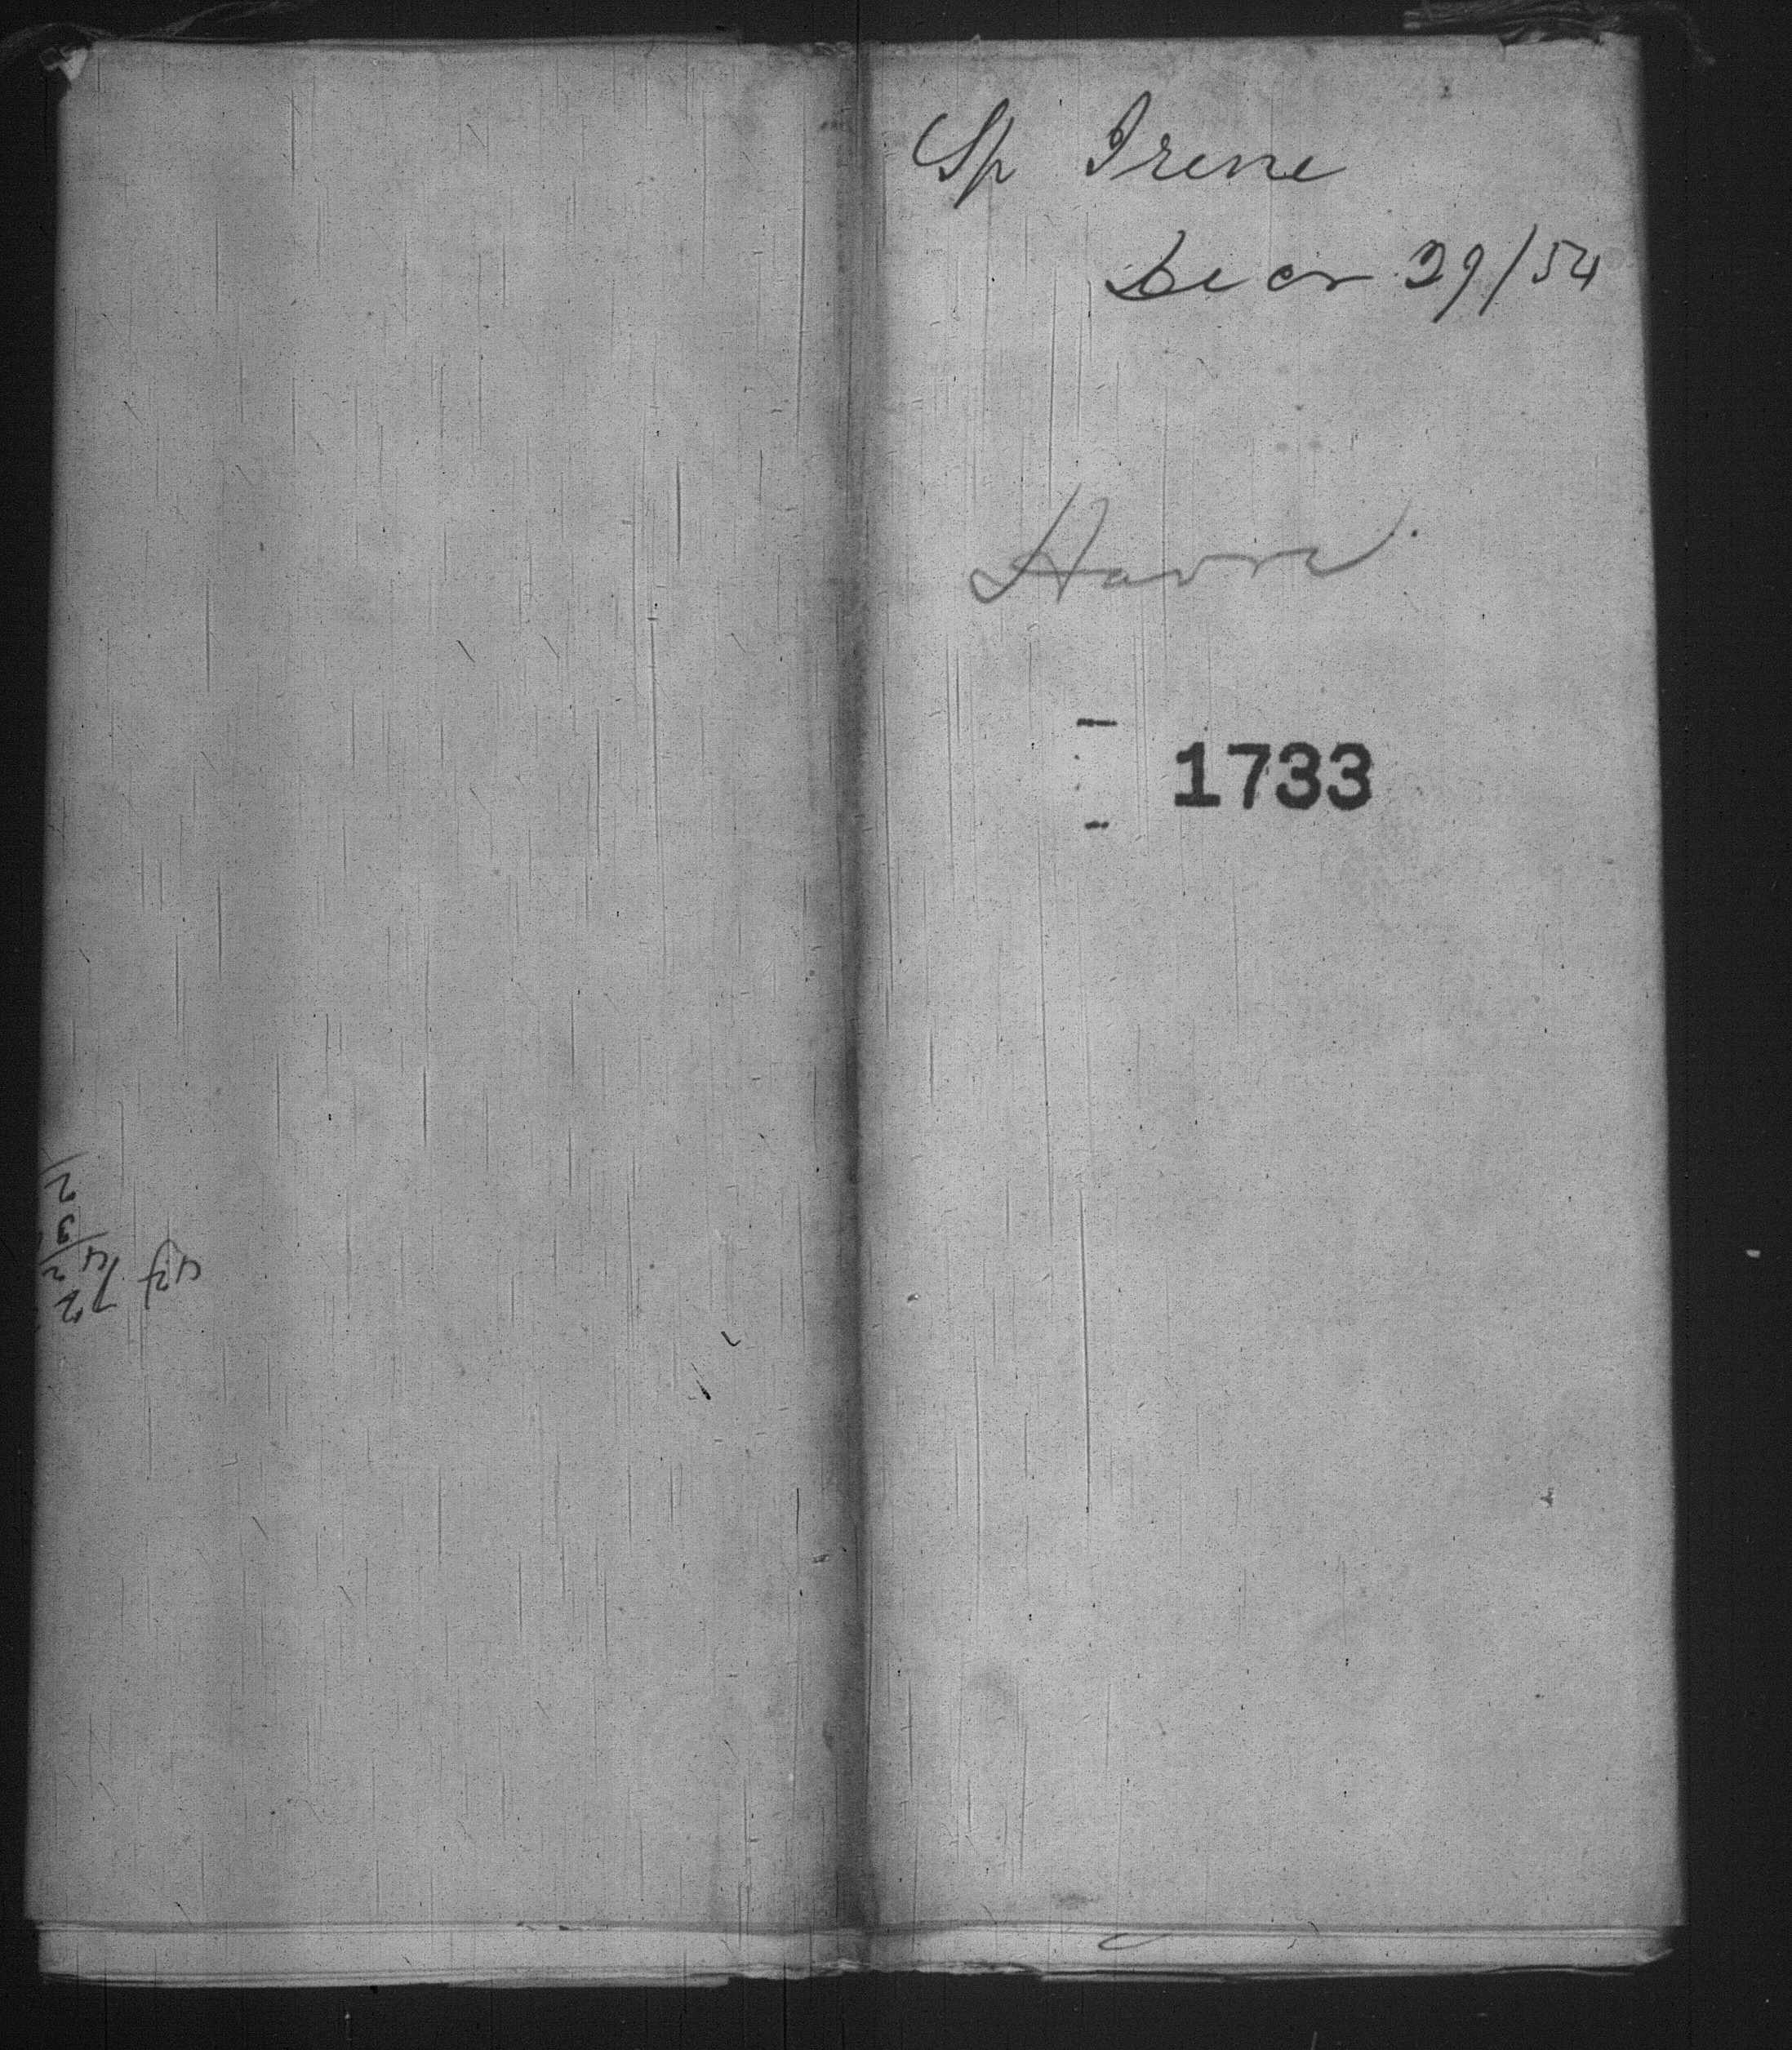 Sp Irene
Decr 29/54
Havre
1733